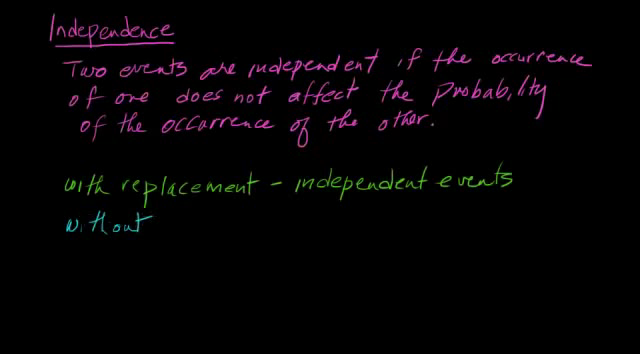 Independence
Two events are independent if the occurrence
of one does not affect the Probability
of the occurrence of the other.
with replacement - independent events
without